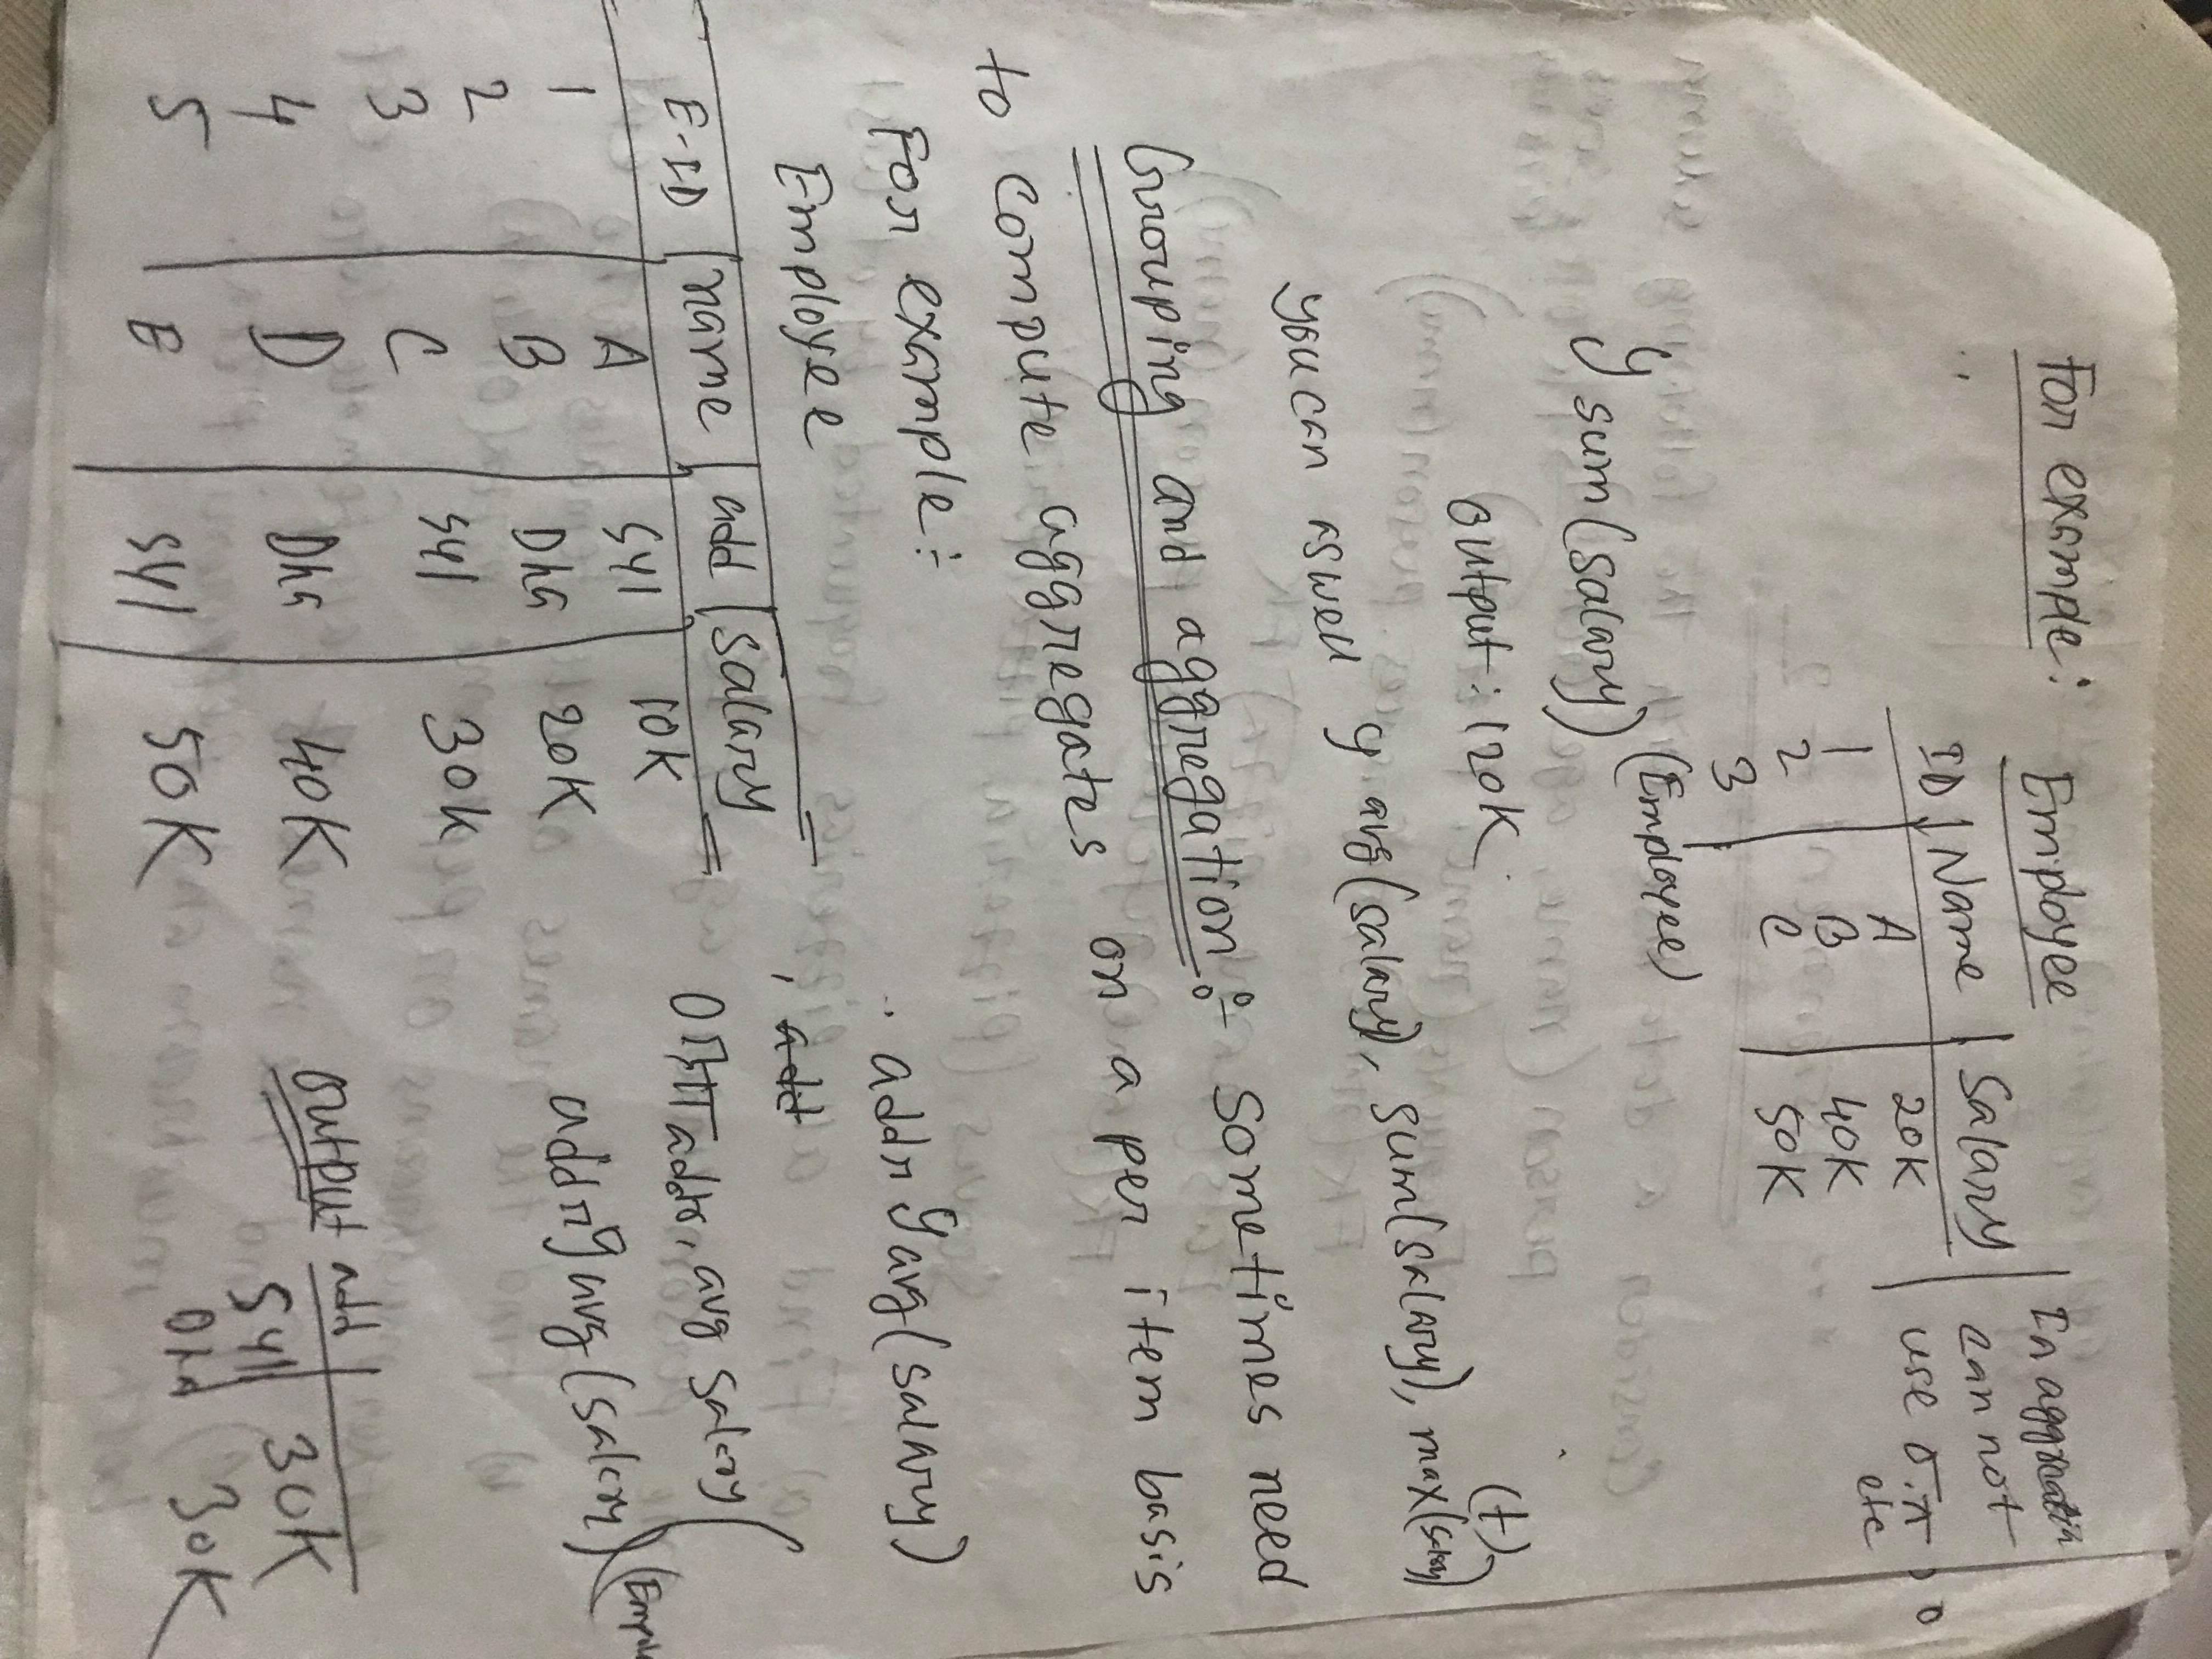 For example:
Employee
ID | Name | Salary
1 | A | 20K
2 | B | 40K
3 | C | 50K
can not
use σ.π
etc
𝒢 sum(salary) (Employee)
output: 120K
you can aswell 𝒢 avg(salary), sum(salary), max(salary) (t)
Grouping and aggregation :- Sometimes need
to compute aggregates on a per item basis
For example :-
Employee
E-ID | name | add | salary
1 | A | Syl | 10K
2 | B | Dha | 20K
3 | C | Syl | 30K
4 | D | Dha | 40K
5 | E | Syl | 50K
addr 𝒢 avg(salary)
add
OR, π addr, avg salary (
addr 𝒢 avg(salary) (Emplo
output
add |
Syl | 30K
Dha | 30K